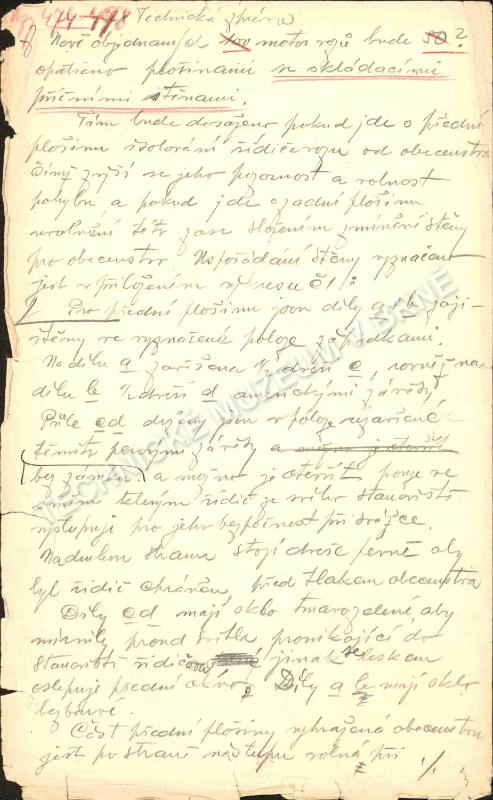 474-478 Technická zpráva
Nově objednaných 100 motor. vozů bude 50?
opatřeno plošinami se skládacími
příčními stěnami.
Tím bude dosaženo pokud jde o přední
plošinu isolování řidiče vozu od obecenstva
čímž zvýší se jeho pozornost a volnost
pohybu a pokud jde o zadní plošinu
uvolnění této zase složením zmíněné stěny
pro obecenstvo. Uspořádání stěny vyznačeno
jest v přiloženém výkresu č 1:
Pro přední plošinu jsou díly a b zaji-
štěny ve vyznačené poloze západkami.
Na dílu a zavěšena 1/2 dveří c, rovněž na
dílu b 1/2 dveří d americkými závěsy
Půle c d drženy jsou v poloze uzavřené
těmito pérovými závěsy a možno je otevřít
bez zámku a možno je otevřít pouze ve
směru kterým řidič ze svého stanoviště
vystupuje pro jeho bezpečnost při srážce.
Na druhou stranu stojí dveře pevně aby
byl řidič chráněn před tlakem obecenstva
Díly c d mají sklo tmavozelené, aby
mírnily proud světla pronikající do
stanoviště řidičova jinak se leskem
oslepuje přední okno. Díly a b mají sklo
bezbarvé.
Část přední plošiny vyhražená obecenstvu
jest po straně nástupu volná při